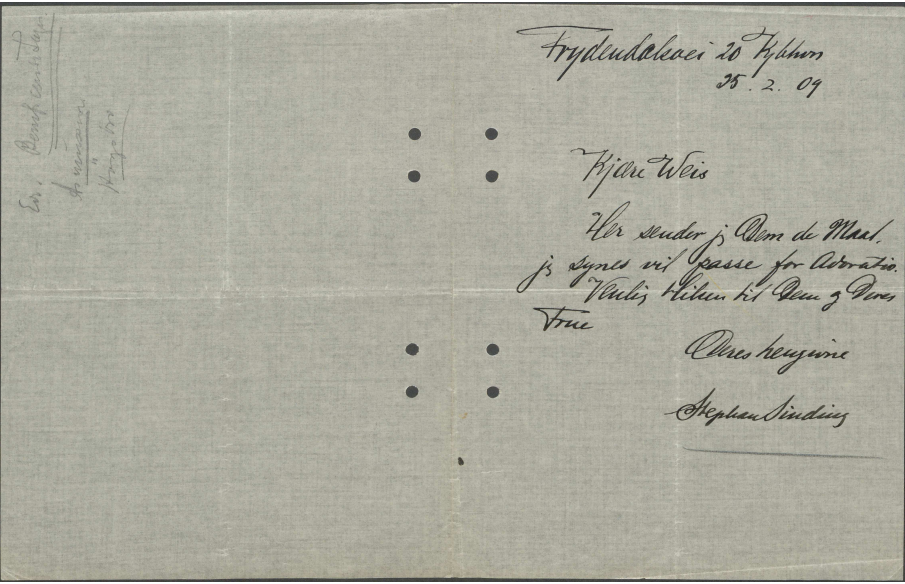 Frydendalsvei 20 Kjbhvn
25. 2. 09
Kjære Weis
Her sender jeg Dem de Maal,
jeg synes vil passe for Adoratio.
Venlig Hilsen til Dem og Deres
Frue
Deres hengivne
Stephan Sinding